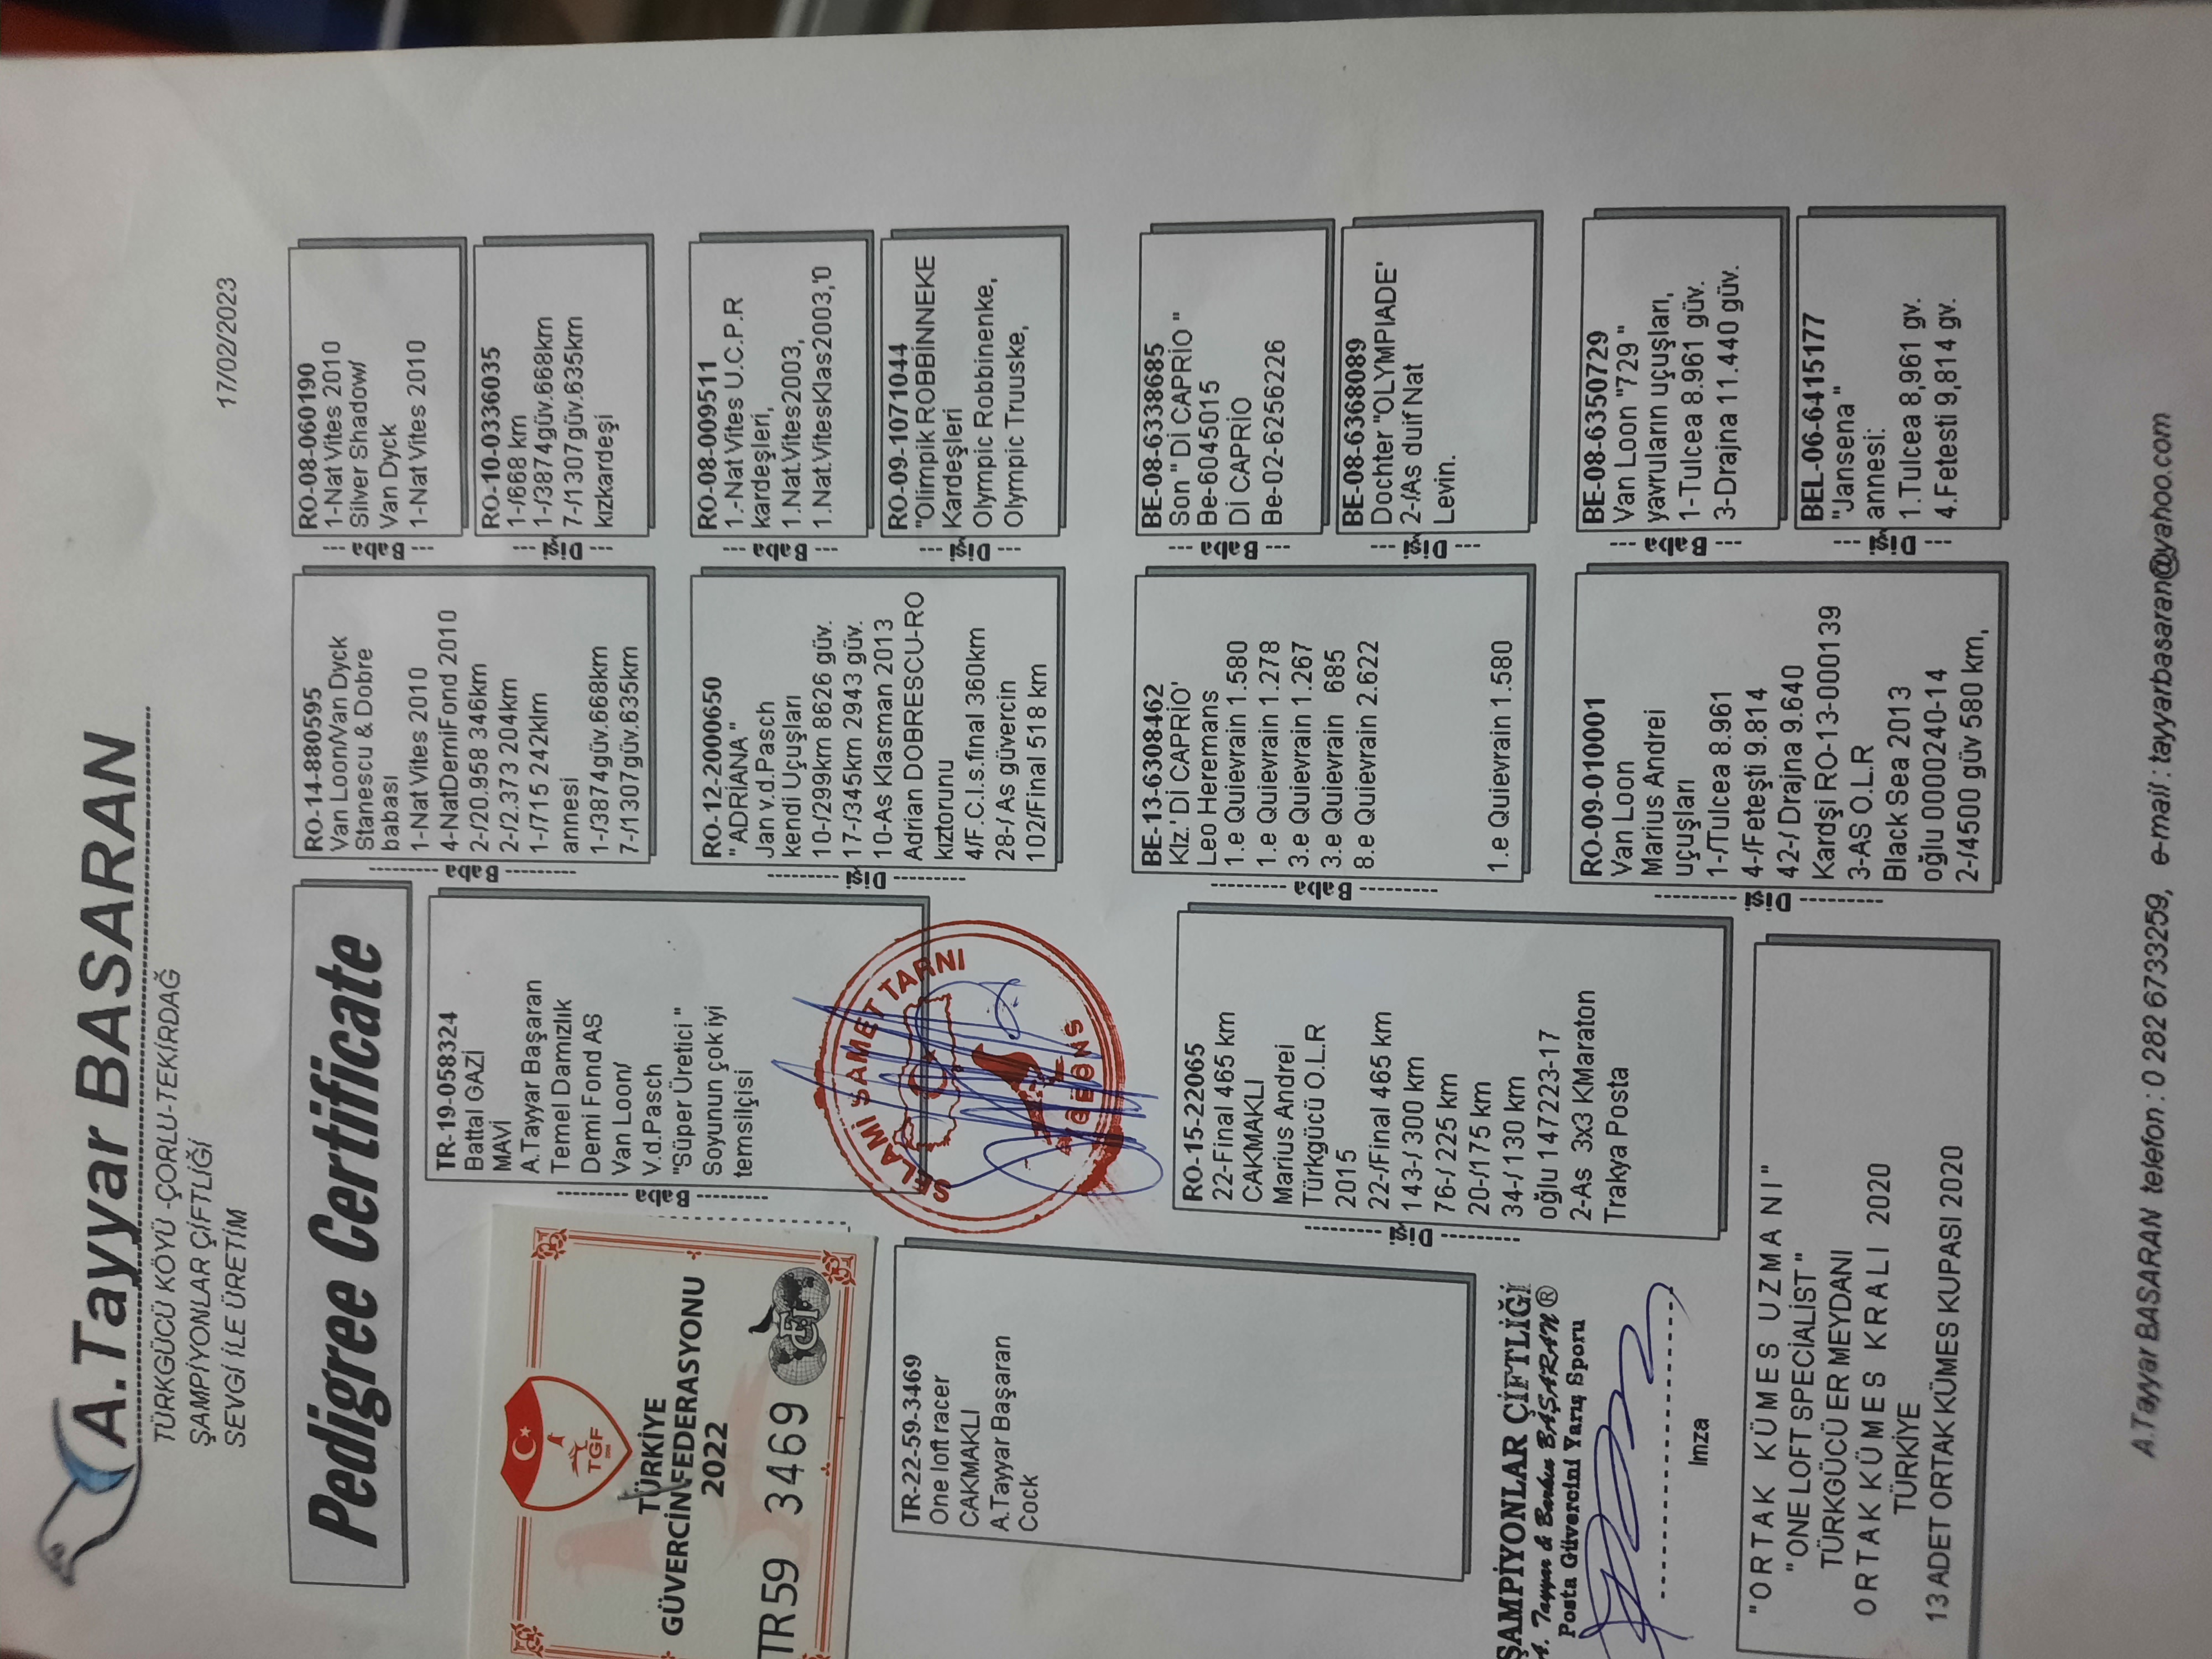 A.Tayyar BASARAN
TÜRKGÜCÜ KÖYÜ -ÇORLU-TEKİRDAĞ
ŞAMPİYONLAR ÇİFTLİĞİ
SEVGİ İLE ÜRETİM
17/02/2023
Pedigree Certificate
TÜRKİYE
GÜVERCİN FEDERASYONU
2022
TGF
FCI
TR59 3469
TR-22-59-3469
One loft racer
CAKMAKLI
A.Tayyar Başaran
Cock
ŞAMPİYONLAR ÇİFTLİĞİ
A. Tayyar & Barbun BAŞARAN ®
Posta Güvercini Yarış Sporu
Imza
"ORTAK KÜMES UZMANI"
"ONE LOFT SPECİALİST"
TÜRKGÜCÜ ER MEYDANI
ORTAK KÜMES KRALI 2020
TÜRKİYE
13 ADET ORTAK KÜMES KUPASI 2020
Baba
TR-19-058324
Battal GAZİ
MAVİ
A.Tayyar Başaran
Temel Damızlık
Demi Fond AS
Van Loon/
V.d.Pasch
"Süper Üretici "
Soyunun çok iyi
temsilçisi
SELAMİ SAMET TARNI
Dişi
RO-15-22065
22-Final 465 km
CAKMAKLI
Marius Andrei
Türkgücü O.L.R
2015
22-/Final 465 km
143-/ 300 km
76-/ 225 km
20-/175 km
34-/ 130 km
oğlu 147223-17
2-As 3x3 KMaraton
Trakya Posta
Baba
RO-14-880595
Van Loon/Van Dyck
Stanescu & Dobre
babası
1-Nat Vites 2010
4-NatDemiFond 2010
2-/20.958 346km
2-/2.373 204km
1-/715 242klm
annesi
1-/3874güv.668km
7-/1307güv.635km
Dişi
RO-12-2000650
" ADRİANA "
Jan v.d.Pasch
kendi Uçuşları
10-/299km 8626 güv.
17-/345km 2943 güv.
10-As Klasman 2013
Adrian DOBRESCU-RO
kıztorunu
4/F.C.I.s.final 360km
28-/ As güvercin
102/Final 518 km
Baba
BE-13-6308462
Kız.' Dİ CAPRİO'
Leo Heremans
1.e Quievrain 1.580
1.e Quievrain 1.278
3.e Quievrain 1.267
3.e Quievrain 685
8.e Quievrain 2.622
1.e Quievrain 1.580
Dişi
RO-09-010001
Van Loon
Marius Andrei
uçuşları
1-/Tulcea 8.961
4-/Feteşti 9.814
42-/ Drajna 9.640
Kardşi RO-13-000139
3-AS O.L.R
Black Sea 2013
oğlu 0000240-14
2-/4500 güv 580 km,
Baba
RO-08-060190
1-Nat Vites 2010
Silver Shadow/
Van Dyck
1-Nat Vites 2010
Dişi
RO-10-0336035
1-/668 km
1-/3874güv.668km
7-/1307güv.635km
kızkardeşi
Baba
RO-08-009511
1.-Nat Vites U.C.P.R
kardeşleri,
1.Nat.Vites2003,
1.Nat.VitesKlas2003,'0
Dişi
RO-09-1071044
"Olimpik ROBBİNNEKE
Kardeşleri
Olympic Robbinenke,
Olympic Truuske,
Baba
BE-08-6338685
Son " Dİ CAPRİO "
Be-6045015
Dİ CAPRİO
Be-02-6256226
Dişi
BE-08-6368089
Dochter "OLYMPIADE'
2-/As duif Nat
Levin.
Baba
BE-08-6350729
Van Loon "729 "
yavruların uçuşları,
1-Tulcea 8.961 güv.
3-Drajna 11.440 güv.
Dişi
BEL-06-6415177
"Jansena "
annesi:
1.Tulcea 8,961 gv.
4.Fetesti 9,814 gv.
A.Tayyar BASARAN telefon : 0 282 6733259, e-mail : tayyarbasaran@yahoo.com